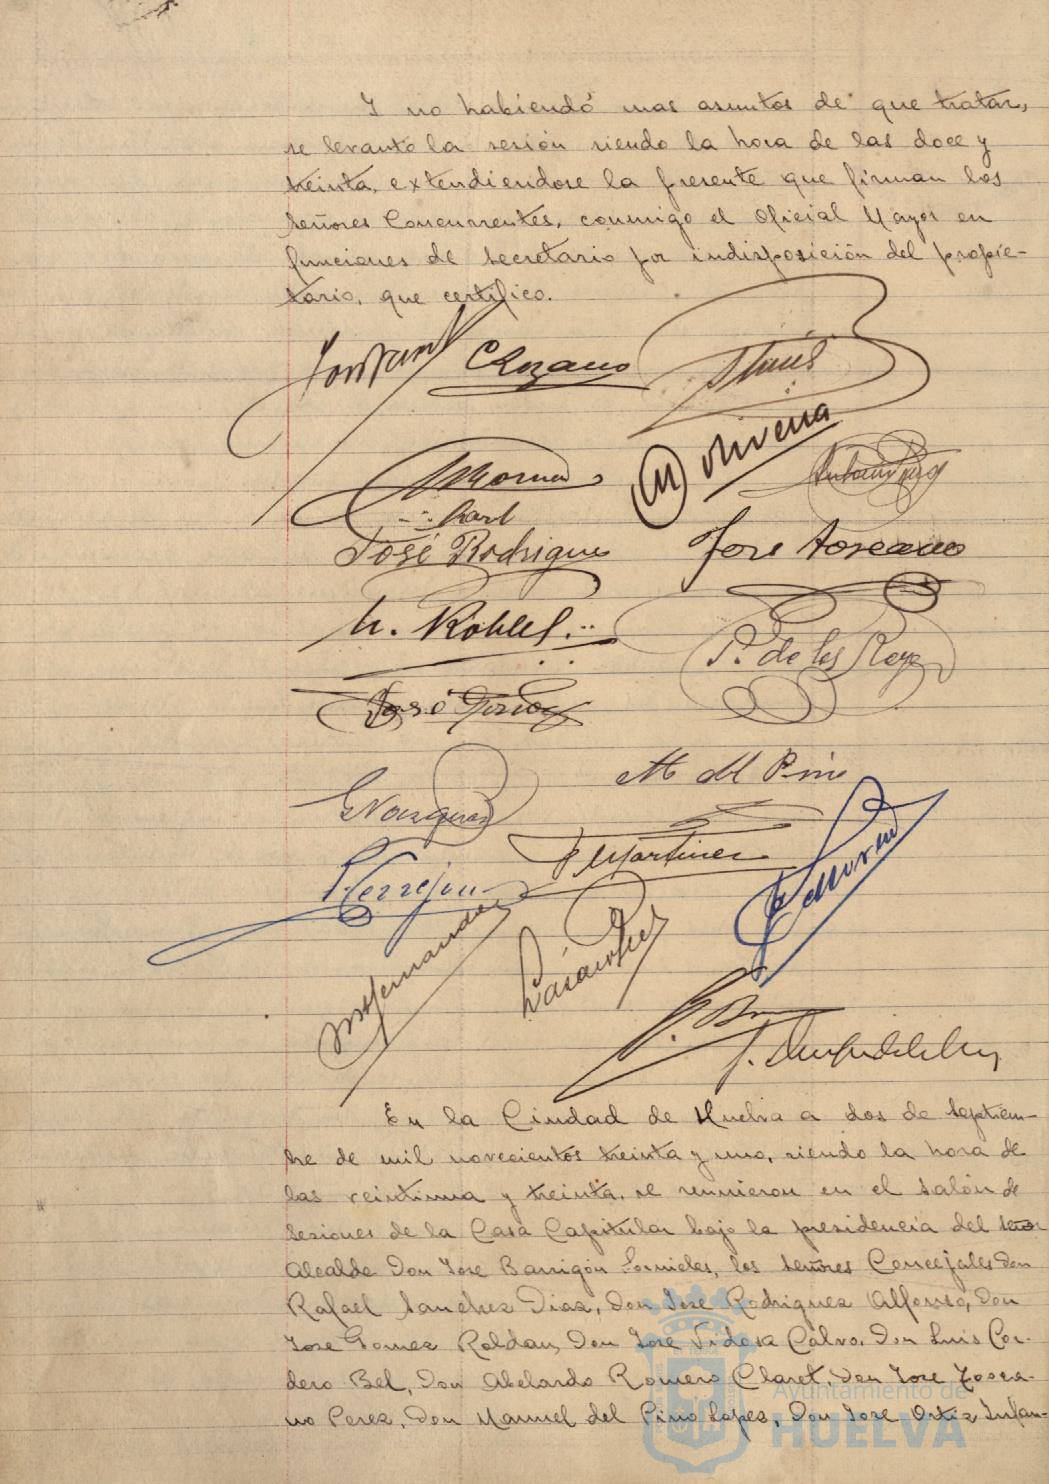 Y no habiendo mas asuntos de que tratar,
se levanto la sesión siendo la hora de las doce y
treinta, extendiendose la presente que firman los
señores Concurrentes, conmigo el Oficial Mayor en
funciones de secretario por indisposición del propie-
tario, que certifico.
C Lozano
M Olivera
José Rodriguez José Toscano
M. Robles
P. de los Reyes
José
E Vazquez M del Pino
P. Terrejon F Martinez
M Hernandez
En la Ciudad de Huelva a dos de septiem-
bre de mil novecientos treinta y uno, siendo la hora de
las veintiuna y treinta, se reunieron en el salón de
sesiones de la Casa Capitular bajo la presidencia del señor
Alcalde Don Jose Barrigón Fornieles, los señores Concejales Don
Rafael Sanchez Diaz, Don Jose Rodriguez Alfonso, Don
Jose Gomez Roldan, Don José Tidosa Calvo, Don Luis Cor-
dero Bel, Don Abelardo Romero Claret, Don Jose Tosca-
no Perez, Don Manuel del Pino Lopez, Don Jose Ortiz Infan-
Ayuntamiento de
HUELVA